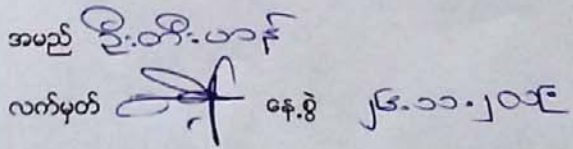 အမည် ဦးတီးဟန်
လက်မှတ် နေ့စွဲ ၂၆.၁၁.၂၀၁၉